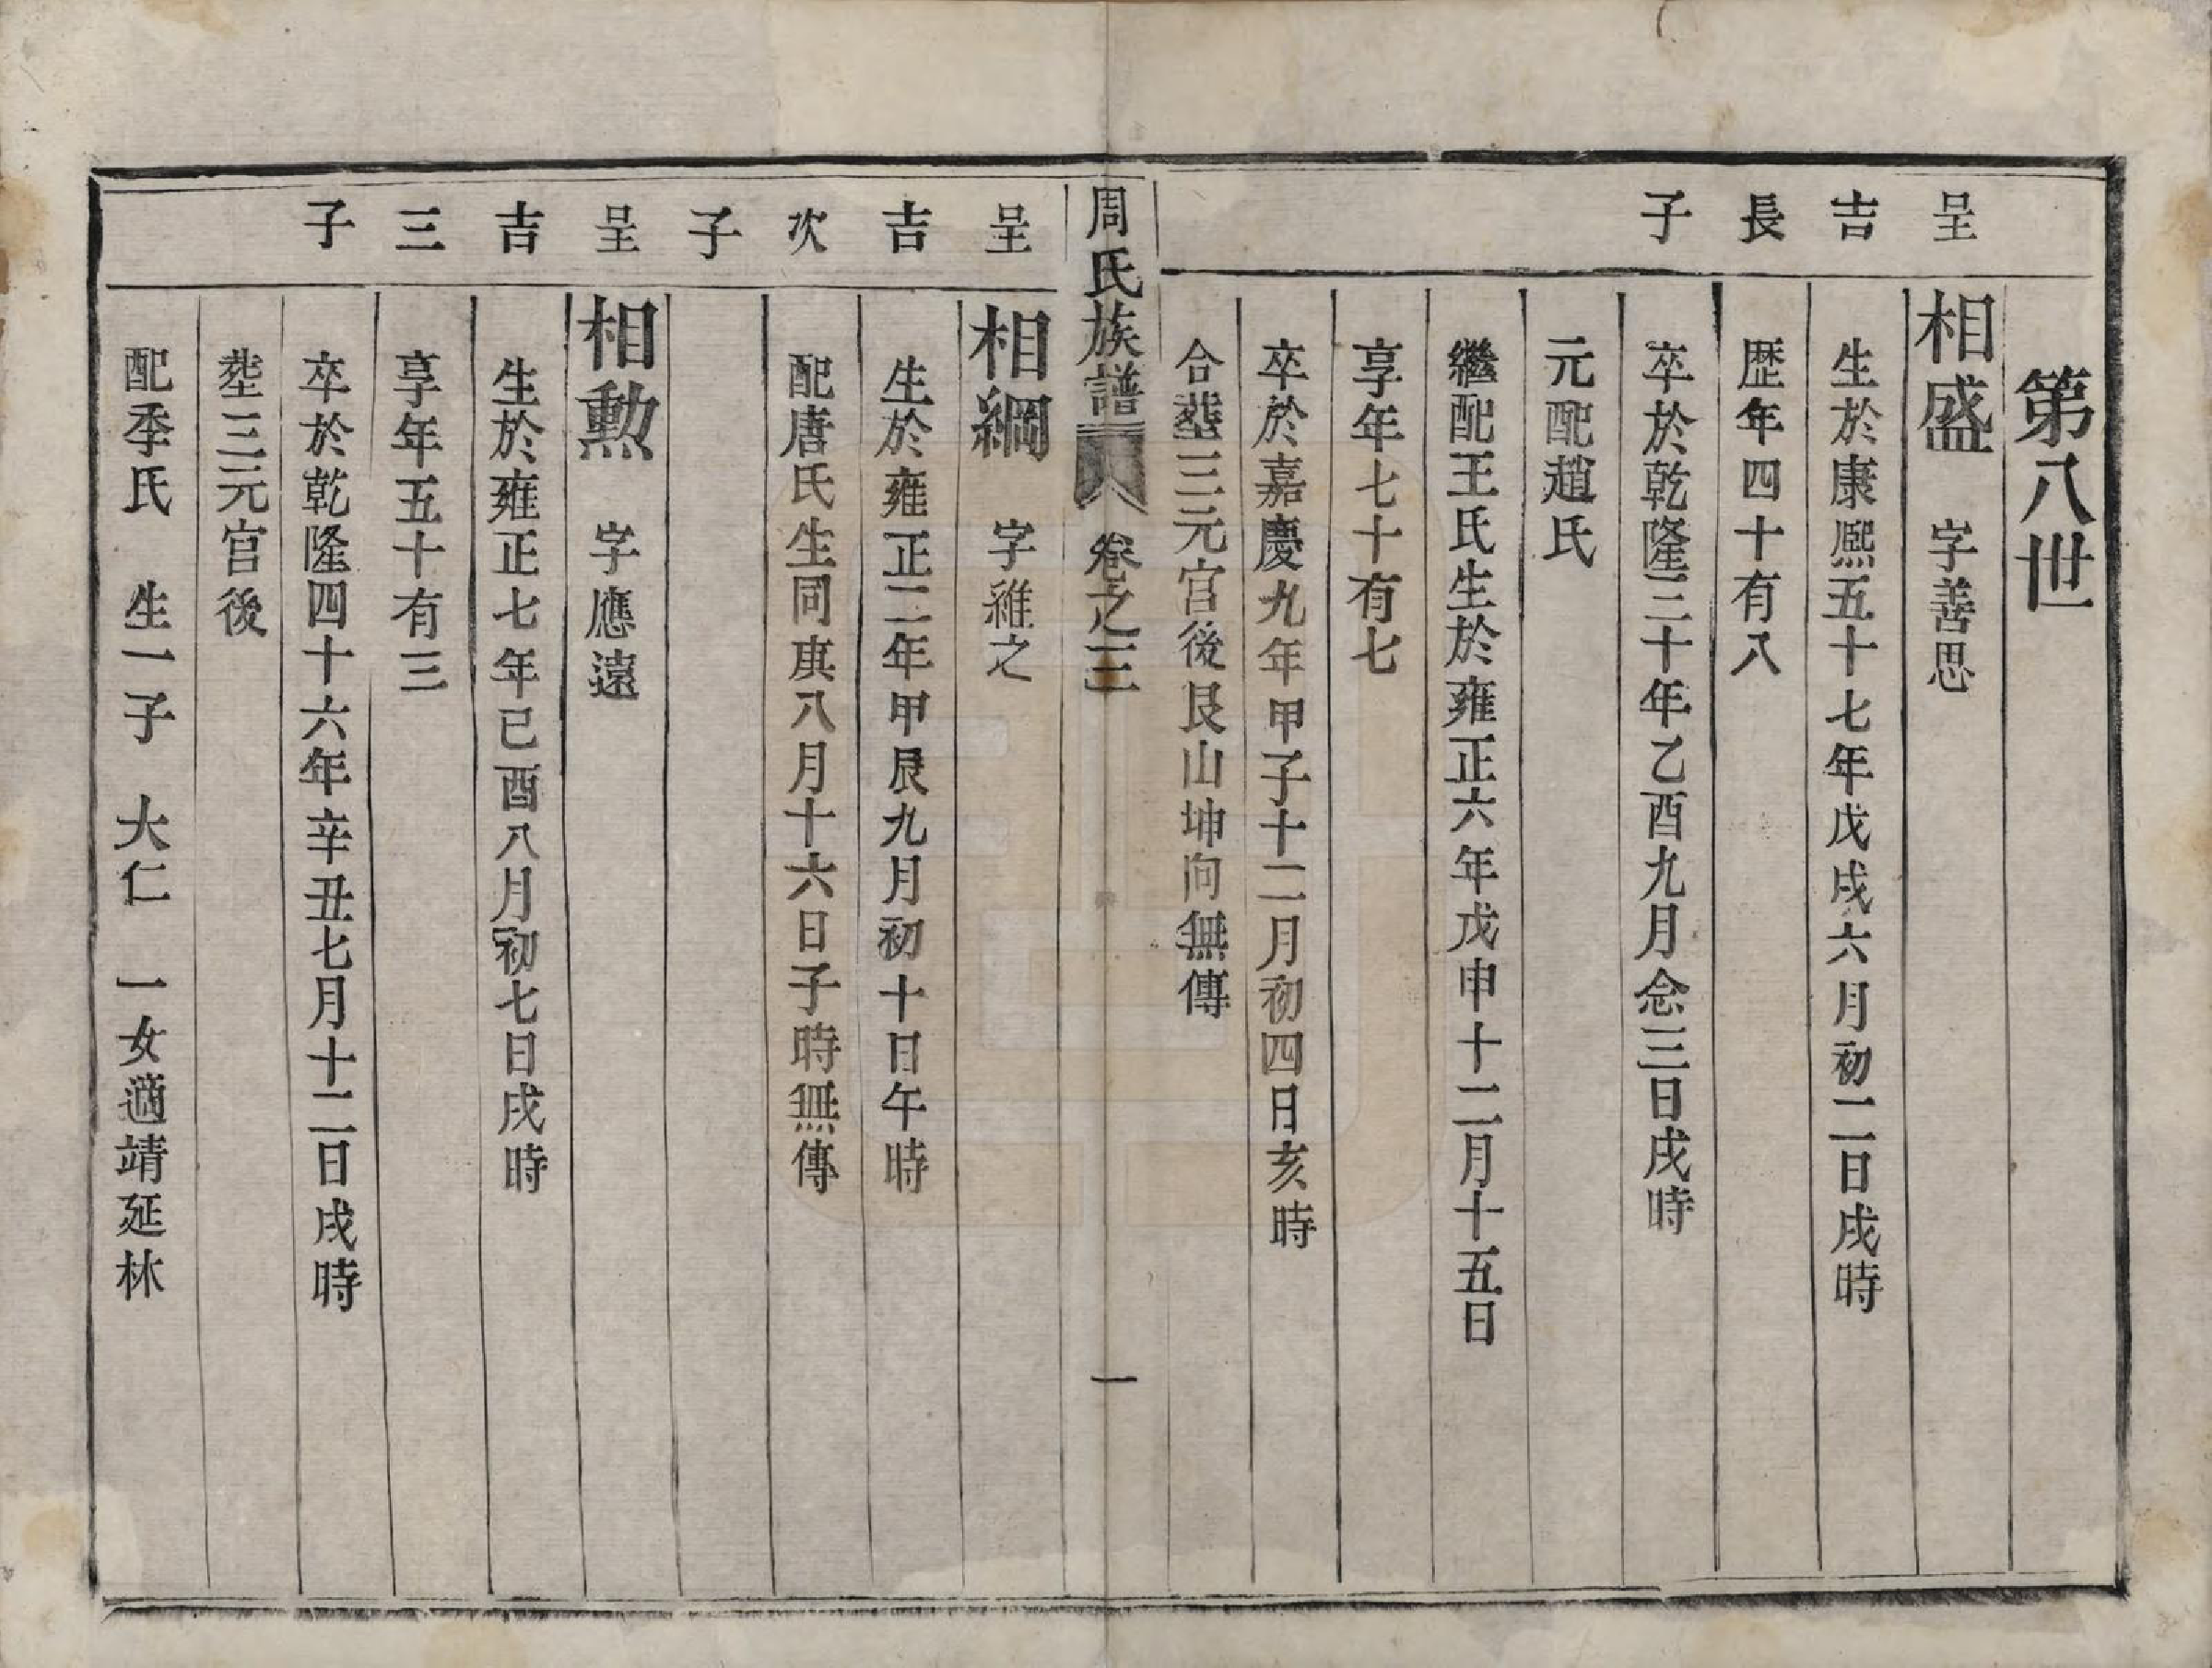 第八世
呈吉長子
相盛 字善思
生於康熙五十七年戊戌六月初二日戌時
歷年四十有八
卒於乾隆三十年乙酉九月念三日戌時
元配趙氏
繼配王氏生於雍正六年戊申十二月十五日
享年七十有七
卒於嘉慶九年甲子十二月初四日亥時
合塟三元宮後艮山坤向無傳
周氏族譜 卷之三 一
呈吉次子
相綱 字維之
生於雍正二年甲辰九月初十日午時
配唐氏生同庚八月十六日子時無傳
呈吉三子
相勲 字應遠
生於雍正七年己酉八月初七日戌時
享年五十有三
卒於乾隆四十六年辛丑七月十二日戌時
塟三元宮後
配季氏 生一子 大仁 一女適靖延林